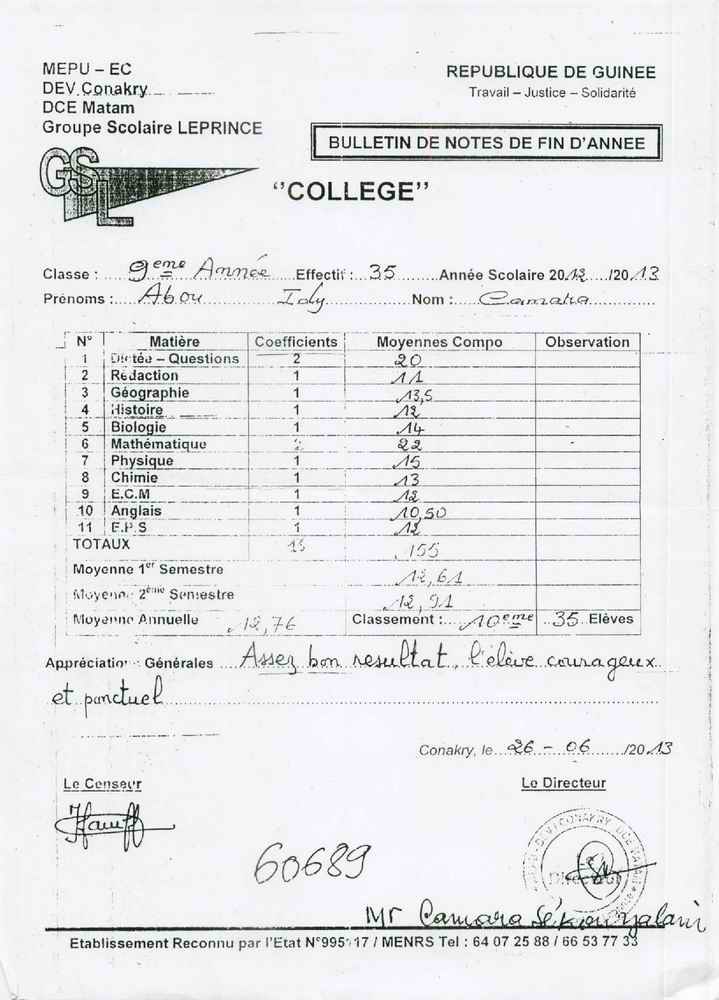 MEPU – EC
DEV.Conakry
DCE Matam
Groupe Scolaire LEPRINCE
GSL
REPUBLIQUE DE GUINEE
Travail – Justice – Solidarité
BULLETIN DE NOTES DE FIN D'ANNEE
"COLLEGE"
Classe : 9eme Année Effectif : 35 Année Scolaire 2012/2013
Prénoms : Abou Idy Nom : Camara
N° Matière Coefficients Moyennes Compo Observation
1 Dictée – Questions 2 20
2 Rédaction 1 11
3 Géographie 1 13,5
4 Histoire 1 12
5 Biologie 1 14
6 Mathématique 2 22
7 Physique 1 15
8 Chimie 1 13
9 E.C.M 1 12
10 Anglais 1 10,50
11 E.P.S 1 12
TOTAUX 155
Moyenne 1er Semestre 12,61
Moyenne 2ème Semestre 12,91
Moyenne Annuelle 12,76 Classement : 10eme 35 Elèves
Appréciation Générales Assez bon resultat, l'élève courageux
et ponctuel
Conakry, le 26 - 06 /2013
Le Censeur Le Directeur
60689
Mr Camara
Etablissement Reconnu par l'Etat N°995 17 / MENRS Tel : 64 07 25 88 / 66 53 77 33